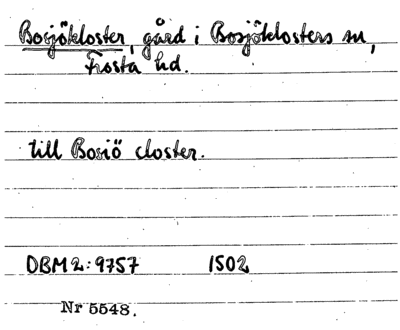 Bosjökloster, gård i Bosjöklosters sn,
Frosta hd.
till Bosiö closter.
DBM 2:9757 1502
Nr 5548.